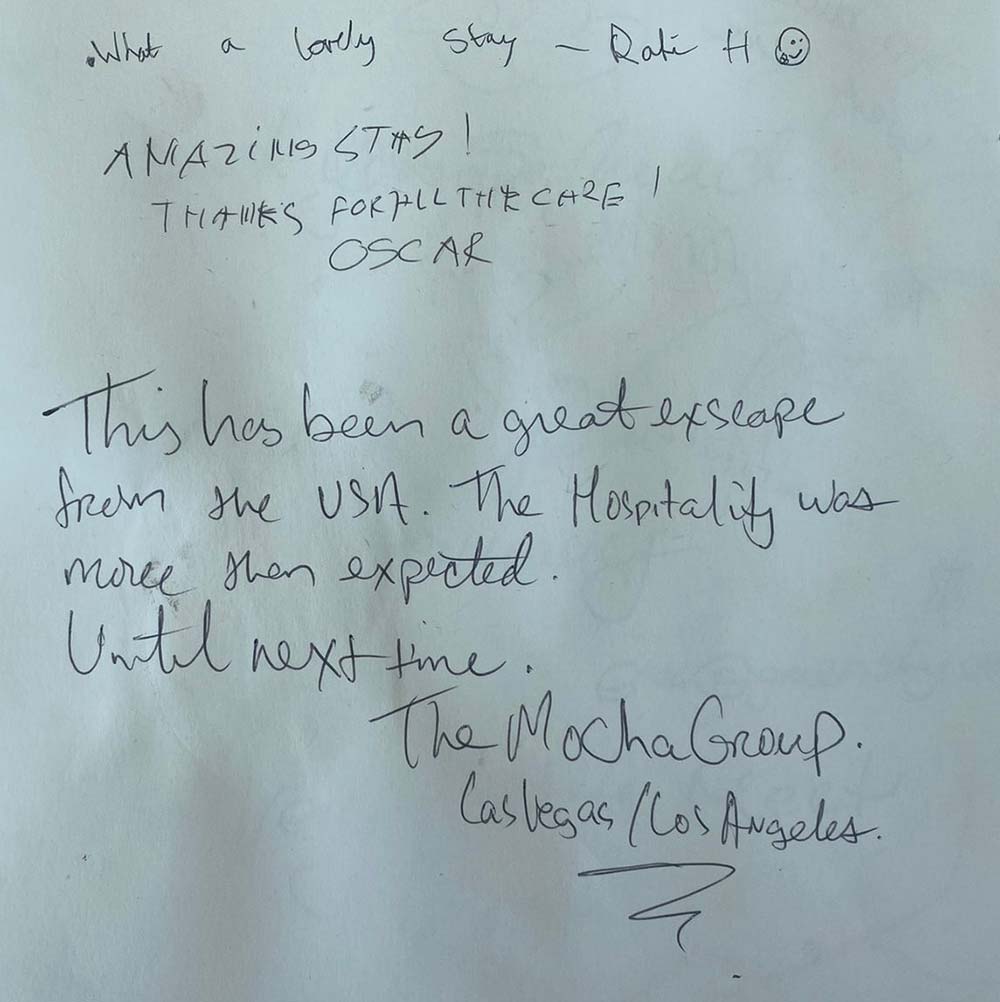 .What a lovely stay - Rati H
AMAZING STAY!
THANKS FOR ALL THE CARE!
OSCAR
This has been a great exscape
from the USA. The Hospitality was
more then expected.
Until next time.
The Mocha Group.
Las Vegas / Los Angeles.